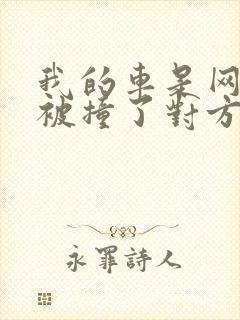 我的車呆网
被撞了對方
永罪詩人